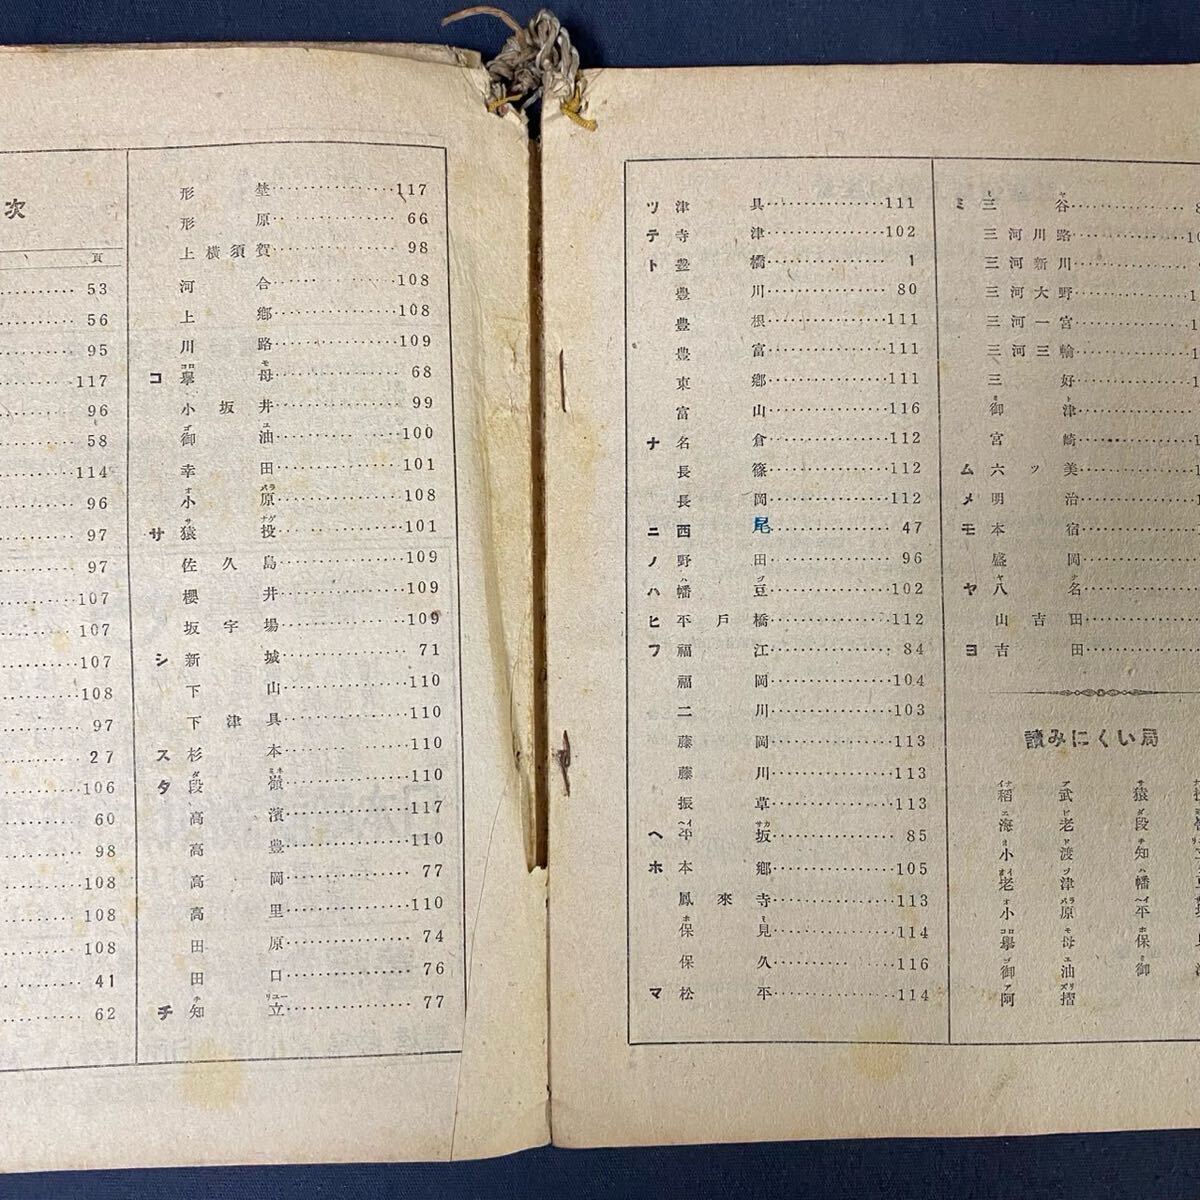 次
頁
53
56
95
117
96
58
114
96
97
97
107
107
107
108
97
27
106
60
98
108
108
108
41
62
形埜 117
形原 66
上橫須賀 98
河合 108
上鄉 108
川路 109
コ 擧母 68
小坂井 99
御油 100
幸田 101
小原 108
サ 猿投 101
佐久島 109
櫻井 109
坂宇場 109
シ 新城 71
下山 110
下津具 110
ス 杉本 110
タ 段嶺 110
高濱 117
高豊 110
高岡 77
高里 110
田原 74
田口 76
チ 知立 77
ツ 津具 111
テ 寺津 102
ト 豊橋 1
豊川 80
豊根 111
豊富 111
東鄉 111
富山 116
ナ 名倉 112
長篠 112
長岡 112
ニ 西尾 47
ノ 野田 96
ハ 幡豆 102
ヒ 平戶橋 112
フ 福江 84
福岡 104
二川 103
藤岡 113
藤川 113
振草 113
ヘ 平坂 85
ホ 本鄉 105
鳳來寺 113
保見 114
保久 116
マ 松平 114
ミ 三谷
三河川路
三河新川
三河大野
三河一宮
三河三輪
三好
御津
宮崎
ム 六ツ美
メ 明治
モ 本宿
盛岡
ヤ 八名
山吉田
ヨ 吉田
讀みにくい局
稻 武 猿
海 老 段
小 渡 知
老 津 幡
小 原 平
擧 母 保
御 油 御
阿 摺